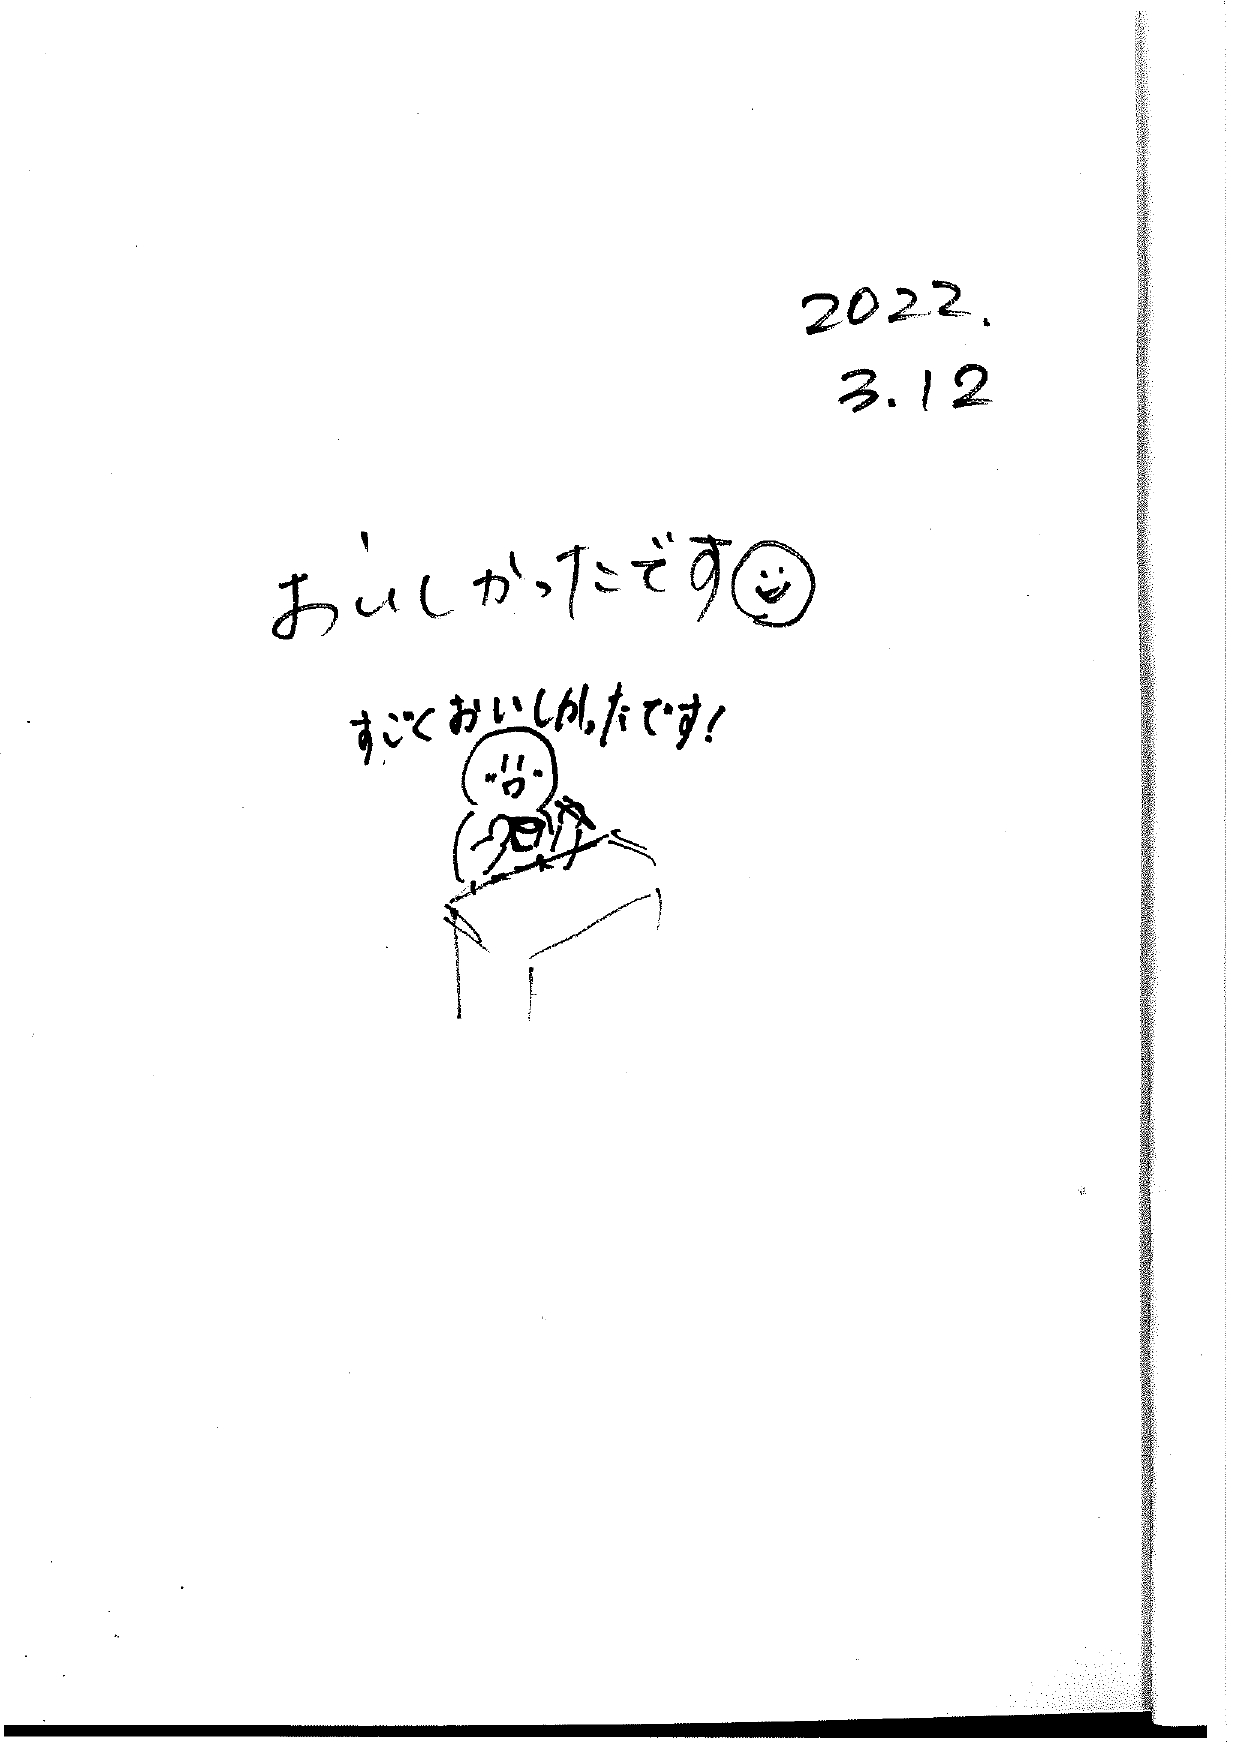 2022.
3.12
おいしかったです
すごくおいしかったです!